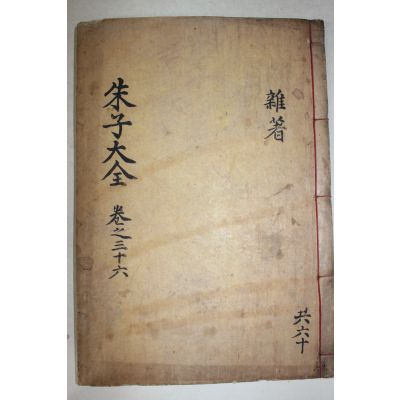 雜著
朱子大全 卷之三十六
共六十